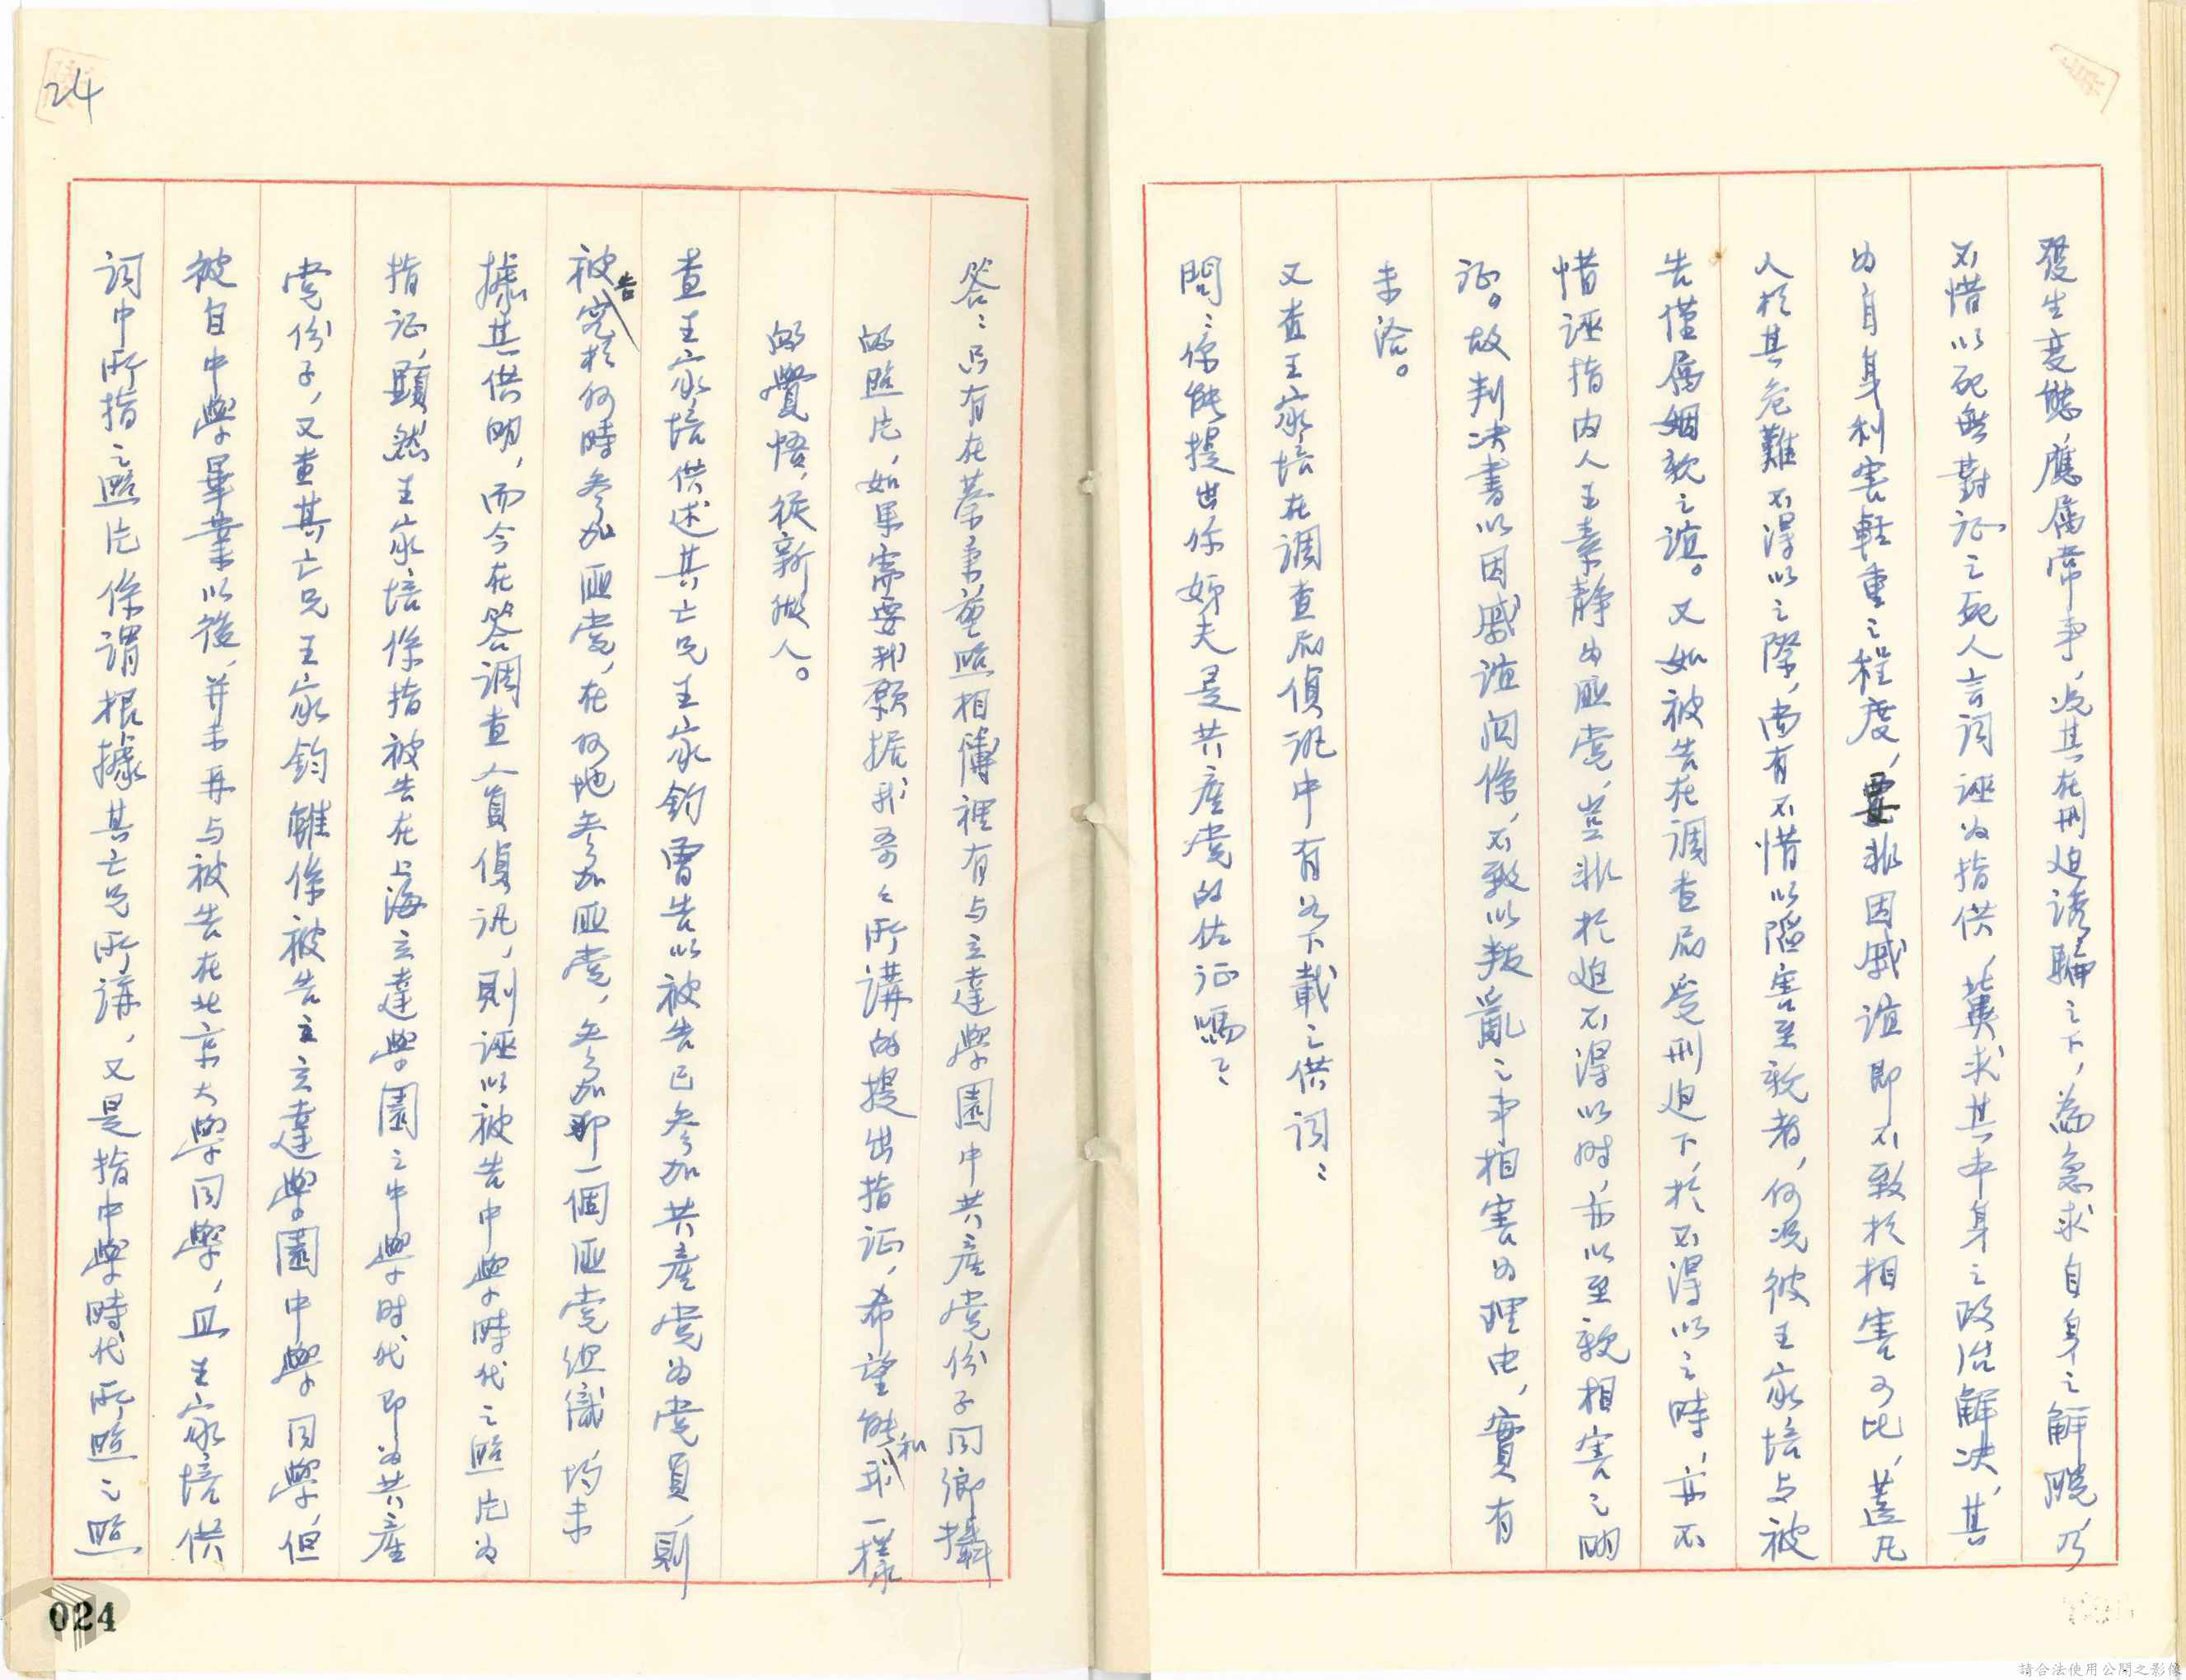 發生變態,應屬常事,况其在刑迫誘騙之下,為急求自身之解脫,乃
不惜以死無對证之死人言詞誣為指供,冀求其本身之政治解决,其
为自身利害輕重之程度,要非因戚誼即不致於相害可比,蓋凡
人於其危難不得以之際,尚有不惜以陷害至親者,何况彼王家培与被
告僅属姻親之誼。又如被告在調查局受刑迫下,於不得以之時,亦不
惜誣指内人王素静为匪党,豈非於迫不得以时,亦以至親相害之明
证。故判决書以因戚誼関係,不致以叛亂之事相害为理由,實有
未洽。
又查王家培在調查局偵訊中有如下載之供詞:
問:你能提出你姊夫是共產党的佐证嗎?
24
答:只有在蔡秉堃照相簿裡有与立達學園中共產党份子同鄉攝
的照片,如果需要我願据我哥々所講的提出指证,希望能和我一樣
的覺悟,從新做人。
查王家培供述其亡兄王家鈞曾告以被告已參加共產党为党員,則
被告究於何時參加匪党,在何地參加匪党,參加那一個匪党组織均未
據其供明,而今在答調查人員偵訊,則誣以被告中學時代之照片为
指证,顯然王家培係指被告在上海立達學園之中學时代即为共產
党份子,又查其亡兄王家鈞雖係被告立達學園中學同學,但
被自中學畢業以後,并未再与被告在北京大學同學,且王家培供
詞中所指之照片係谓根據其亡兄所講,又是指中學時代所照之照
024
請合法使用公開之影像